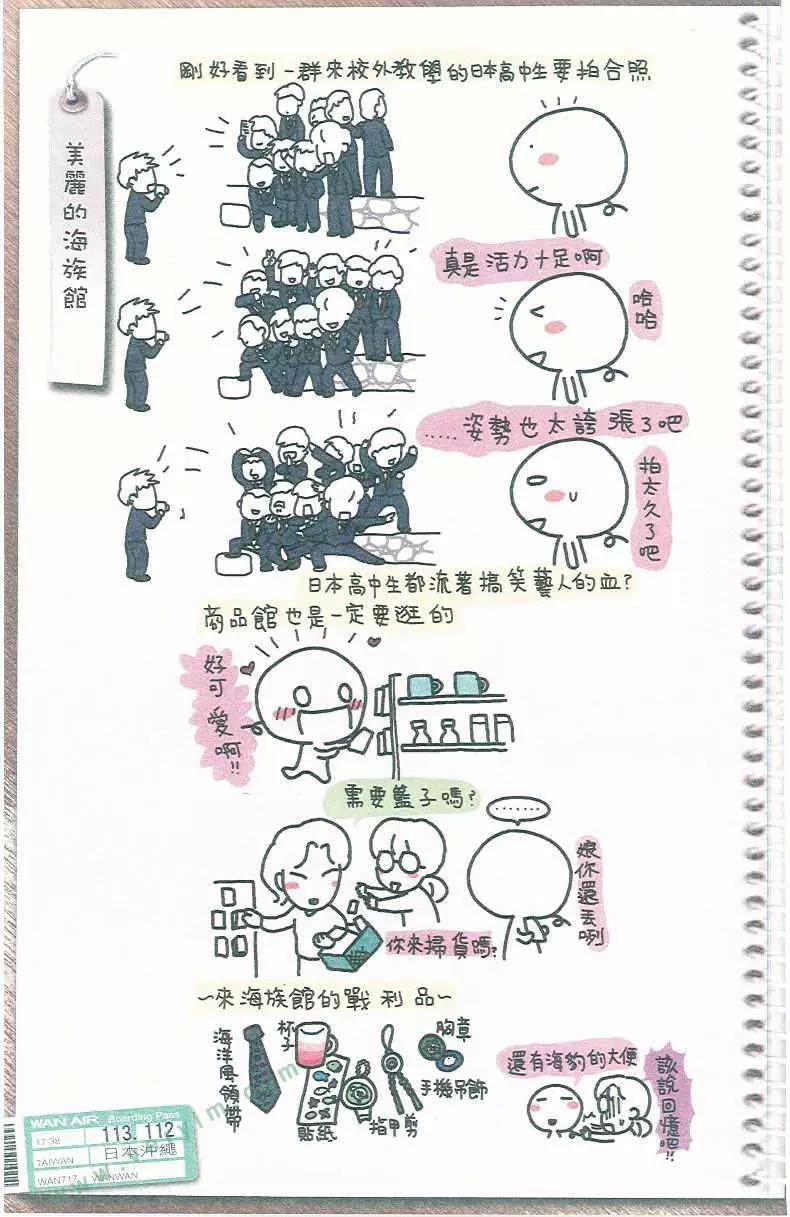 美麗的海族館
剛好看到一群來校外教學的日本高中生要拍合照
真是活力十足啊
哈哈
.....姿勢也太誇張了吧
拍太久了吧
日本高中生都流著搞笑藝人的血?
商品館也是一定要逛的
好可愛啊!!
需要籃子嗎?
.......
你來掃貨嗎?
娘你還丟咧
~來海族館的戰利品~
海洋風領帶
杯子
貼紙
指甲剪
手機吊飾
胸章
還有海豹的大便
該說回憶吧!!
WAN AIR Boarding Pass
17:38 113.112
TAIWAN 日本沖繩
WAN717 WANWAN